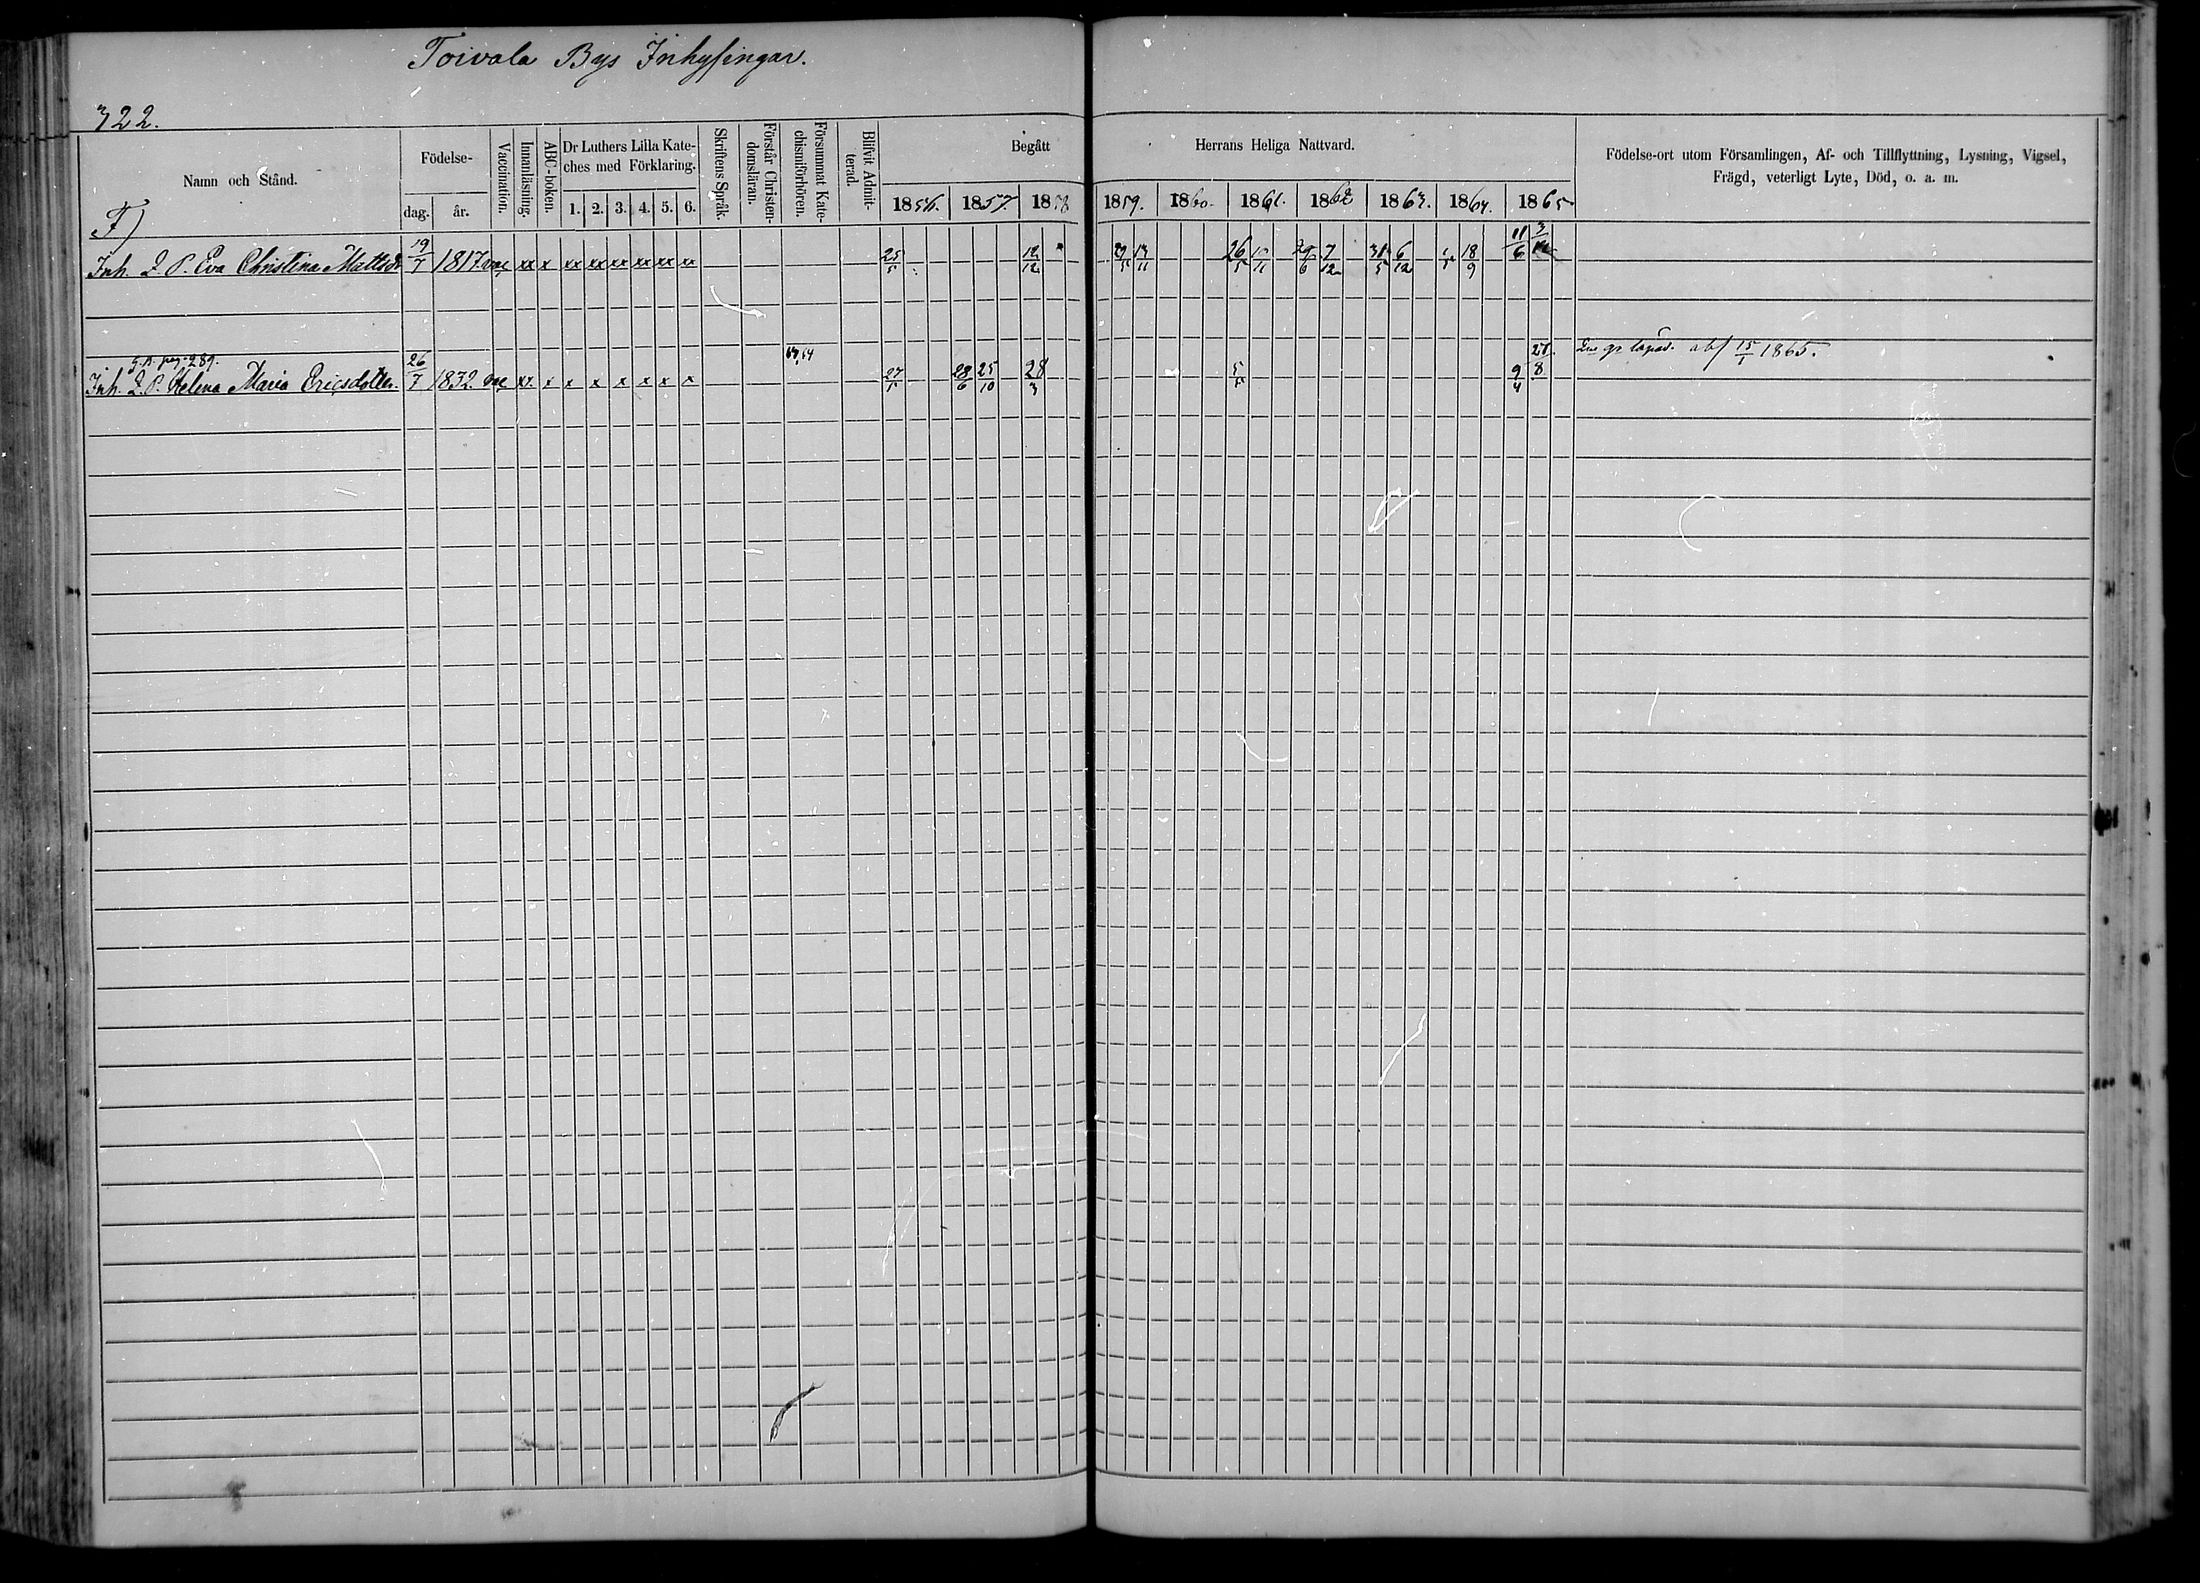 Toivala Bys Inhysingar.
322.
Namn och Stånd.
Födelse-
dag.
år.
Vaccination.
Innanläsning.
ABC-boken.
Dr Luthers Lilla Kate-
ches med Förklaring.
1. 2. 3. 4. 5. 6.
Skriftens Språk.
Förstår Christen-
domsläran.
Försummat Kate-
chismiförhören.
Blifvit Admit-
terad.
Begått Herrans Heliga Nattvard.
1856. 1857. 1858 1859. 1860. 1861. 1862 1863. 1864. 1865.
Födelse-ort utom Församlingen, Af- och Tillflyttning, Lysning, Vigsel,
Frägd, veterligt Lyte, Död, o. a. m.
F)
Inh. Q. P. Eva Christina Mattsdr 19/7 1817 vac xx x xx xx xx xx xx xx 25/5 12/12 13/11 26/5 7/12 31/5 6/12 18/9 11/6
pag. 289.
Inh. Q. P. Helena Maria Ericsdotter. 26/7 1832 vac xx x x x x x x x 27/5 28/6 25/10 28/3 5/5 9/4 27/8 abs 15/1 1865.